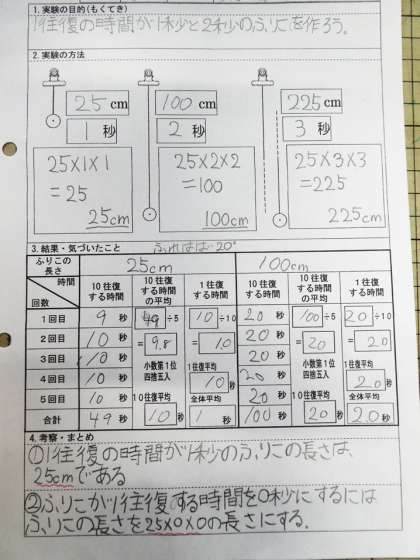 1. 実験の目的(もくてき)
1往復の時間が1秒と2秒のふりこを作ろう。
2. 実験の方法
25 cm
100 cm
225 cm
1 秒
2 秒
3 秒
25×1×1
=25
25cm
25×2×2
=100
100cm
25×3×3
=225
225cm
3. 結果・気づいたこと
ふれはば 20°
ふりこの長さ
25cm
100cm
時間
回数
10往復する時間
10往復する時間の平均
1往復する時間
10往復する時間
10往復する時間の平均
1往復する時間
1回目 9 秒 49 ÷5 10 ÷10 20 秒 100 ÷5 20 ÷10
2回目 10 秒 = 9.8 = 10 20 秒 = 20 = 2.0
3回目 10 秒 小数第1位四捨五入 1往復平均 20 秒 小数第1位四捨五入 1往復平均
4回目 10 秒 10 秒 20 秒 2.0 秒
5回目 10 秒 10往復平均 全体平均 20 秒 10往復平均 全体平均
合計 49 秒 10 秒 1 秒 100 秒 20 秒 2.0 秒
4. 考察・まとめ
①1往復の時間が1秒のふりこの長さは、
25cmである
②ふりこが1往復する時間を0秒にするには
ふりこの長さを25×0×0の長さにする。